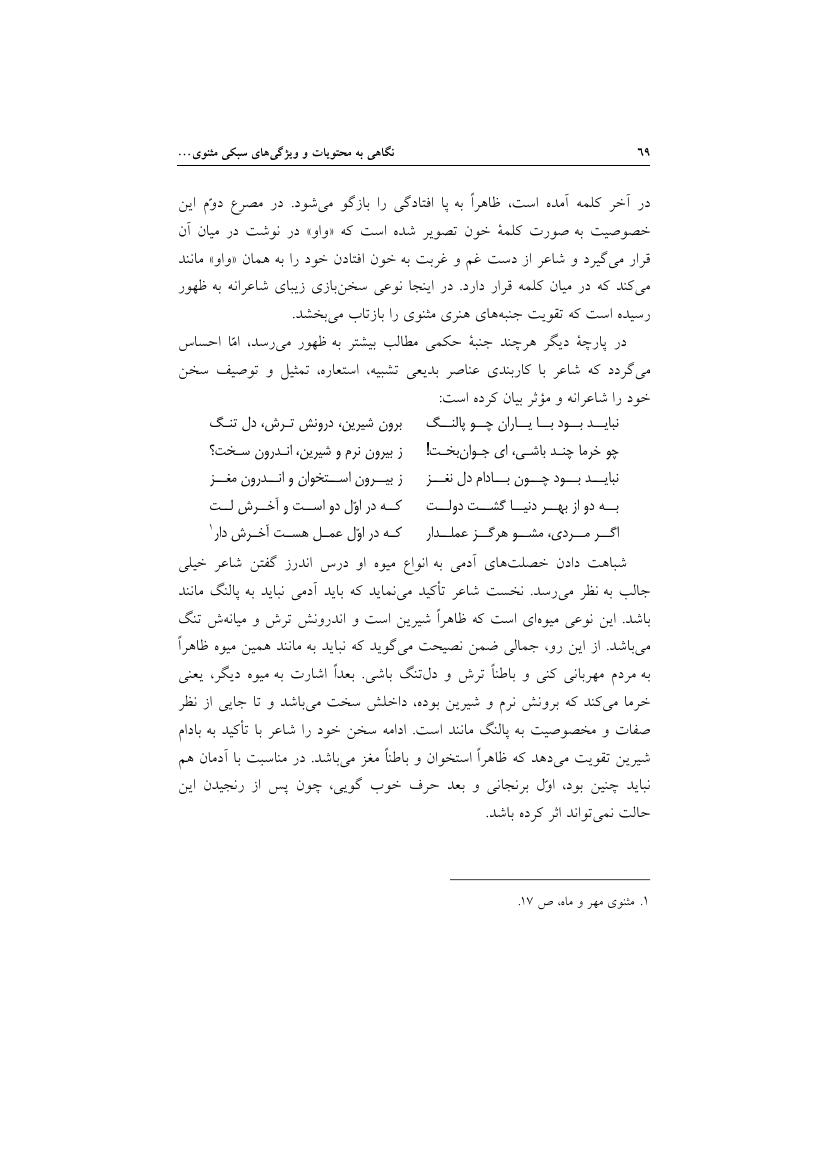 ۶۹ نگاهی به محتویات و ویژگی‌های سبکی مثنوی...
در آخر کلمه آمده است، ظاهراً به پا افتادگی را بازگو می‌شود. در مصرع دوّم این
خصوصیت به صورت کلمهٔ خون تصویر شده است که «واو» در نوشت در میان آن
قرار می‌گیرد و شاعر از دست غم و غربت به خون افتادن خود را به همان «واو» مانند
می‌کند که در میان کلمه قرار دارد. در اینجا نوعی سخن‌بازی زیبای شاعرانه به ظهور
رسیده است که تقویت جنبه‌های هنری مثنوی را بازتاب می‌بخشد.
در پارچهٔ دیگر هرچند جنبهٔ حکمی مطالب بیشتر به ظهور می‌رسد، امّا احساس
می‌گردد که شاعر با کاربندی عناصر بدیعی تشبیه، استعاره، تمثیل و توصیف سخن
خود را شاعرانه و مؤثر بیان کرده است:
نباید بود با یاران چو پالنگ برون شیرین، درونش ترش، دل تنگ
چو خرما چند باشی، ای جوان‌بخت! ز بیرون نرم و شیرین، اندرون سخت؟
نباید بود چون بادام دل نغز ز بیرون استخوان و اندرون مغز
به دو از بهر دنیا گشت دولت که در اوّل دو است و آخرش لت
اگر مردی، مشو هرگز عملدار که در اوّل عمل هست آخرش دار۱
شباهت دادن خصلت‌های آدمی به انواع میوه او درس اندرز گفتن شاعر خیلی
جالب به نظر می‌رسد. نخست شاعر تأکید می‌نماید که باید آدمی نباید به پالنگ مانند
باشد. این نوعی میوه‌ای است که ظاهراً شیرین است و اندرونش ترش و میانه‌ش تنگ
می‌باشد. از این رو، جمالی ضمن نصیحت می‌گوید که نباید به مانند همین میوه ظاهراً
به مردم مهربانی کنی و باطناً ترش و دل‌تنگ باشی. بعداً اشارت به میوه دیگر، یعنی
خرما می‌کند که برونش نرم و شیرین بوده، داخلش سخت می‌باشد و تا جایی از نظر
صفات و مخصوصیت به پالنگ مانند است. ادامه سخن خود را شاعر با تأکید به بادام
شیرین تقویت می‌دهد که ظاهراً استخوان و باطناً مغز می‌باشد. در مناسبت با آدمان هم
نباید چنین بود، اوّل برنجانی و بعد حرف خوب گویی، چون پس از رنجیدن این
حالت نمی‌تواند اثر کرده باشد.
۱. مثنوی مهر و ماه، ص ۱۷.